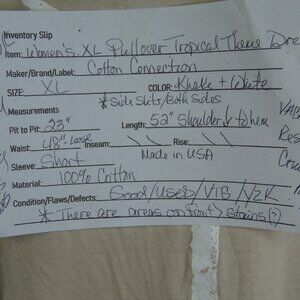 Inventory Slip
Item: Women's XL Pullover Tropical Theme Dre
Maker/Brand/Label: Cotton Connection
SIZE: XL COLOR: Khaki + White
Measurements * Side Slits/Both Sides
Pit to Pit: 23" Length: 52" Shoulder ↓ to Hem
Waist: 48" Loose Inseam: \ \ Rise: \ \
Sleeve: Short Made in USA
Material: 100% Cotton
Condition/Flaws/Defects: Good/Used/VTG/Y2K
* There are areas on front > stains (?)